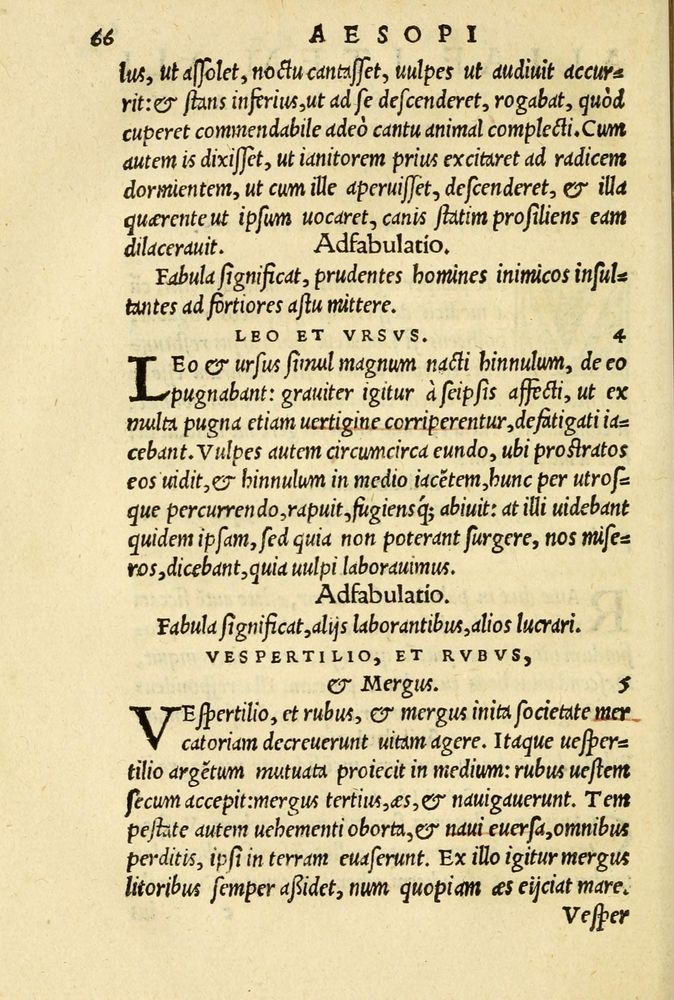 66 AESOPI
lus, ut assolet, noctu cantasset, uulpes ut audiuit accur=
rit: & stans inferius, ut ad se descenderet, rogabat, quòd
cuperet commendabile adeò cantu animal complecti. Cum
autem is dixisset, ut ianitorem prius excitaret ad radicem
dormientem, ut cum ille aperuisset, descenderet, & illa
quærente ut ipsum uocaret, canis statim prosiliens eam
dilacerauit. Adfabulatio.
Fabula significat, prudentes homines inimicos insul=
tantes ad fortiores astu mittere.
LEO ET VRSVS. 4
LEo & ursus simul magnum nacti hinnulum, de eo
pugnabant: grauiter igitur à seipsis affecti, ut ex
multa pugna etiam uertigine corriperentur, defatigati ia=
cebant. Vulpes autem circumcirca eundo, ubi prostratos
eos uidit, & hinnulum in medio iacētem, hunc per utros=
que percurrendo, rapuit, fugiensq́; abiuit: at illi uidebant
quidem ipsam, sed quia non poterant surgere, nos mise=
ros, dicebant, quia uulpi laborauimus.
Adfabulatio.
Fabula significat, alijs laborantibus, alios lucrari.
VESPERTILIO, ET RVBVS,
& Mergus. 5
VEspertilio, et rubus, & mergus inita societate mer
catoriam decreuerunt uitam agere. Itaque uesper=
tilio argētum mutuata proiecit in medium: rubus uestem
secum accepit: mergus tertius, æs, & nauigauerunt. Tem
pestate autem uehementi oborta, & naui euersa, omnibus
perditis, ipsi in terram euaserunt. Ex illo igitur mergus
litoribus semper aßidet, num quopiam æs eijciat mare.
Vesper